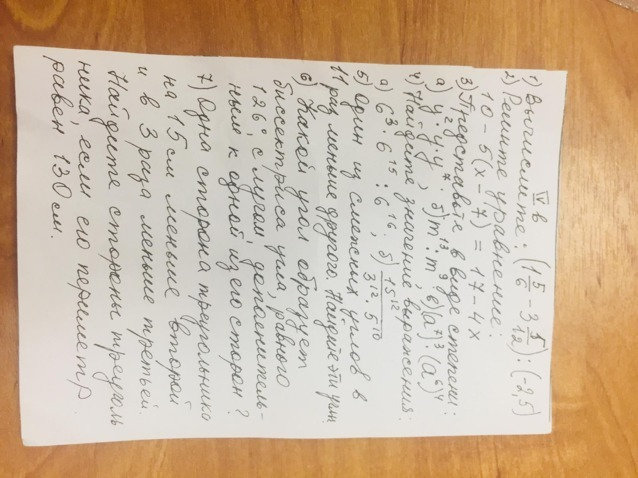 IV в
1) Вычислите: (1 5/6 - 3 5/12) : (-2,5)
2) Решите уравнение:
10 - 5(x - 7) = 17 - 4x
3) Представьте в виде степени:
а) y² · y · y⁷; б) m¹³ : m⁹; в) (a⁷)³ · (a⁶)⁴
4) Найдите значение выражения:
а) 6³ · 6¹⁵ : 6¹⁶; б) 15¹² / 3¹² · 5¹⁰
5) Один из смежных углов в
11 раз меньше другого. Найдите эти углы.
6) Какой угол образует
биссектриса угла, равного
126°, с лучом дополнитель-
ным к одной из его сторон?
7) Одна сторона треугольника
на 15 см меньше второй
и в 3 раза меньше третьей.
Найдите стороны треуголь
ника, если его периметр
равен 130 см.